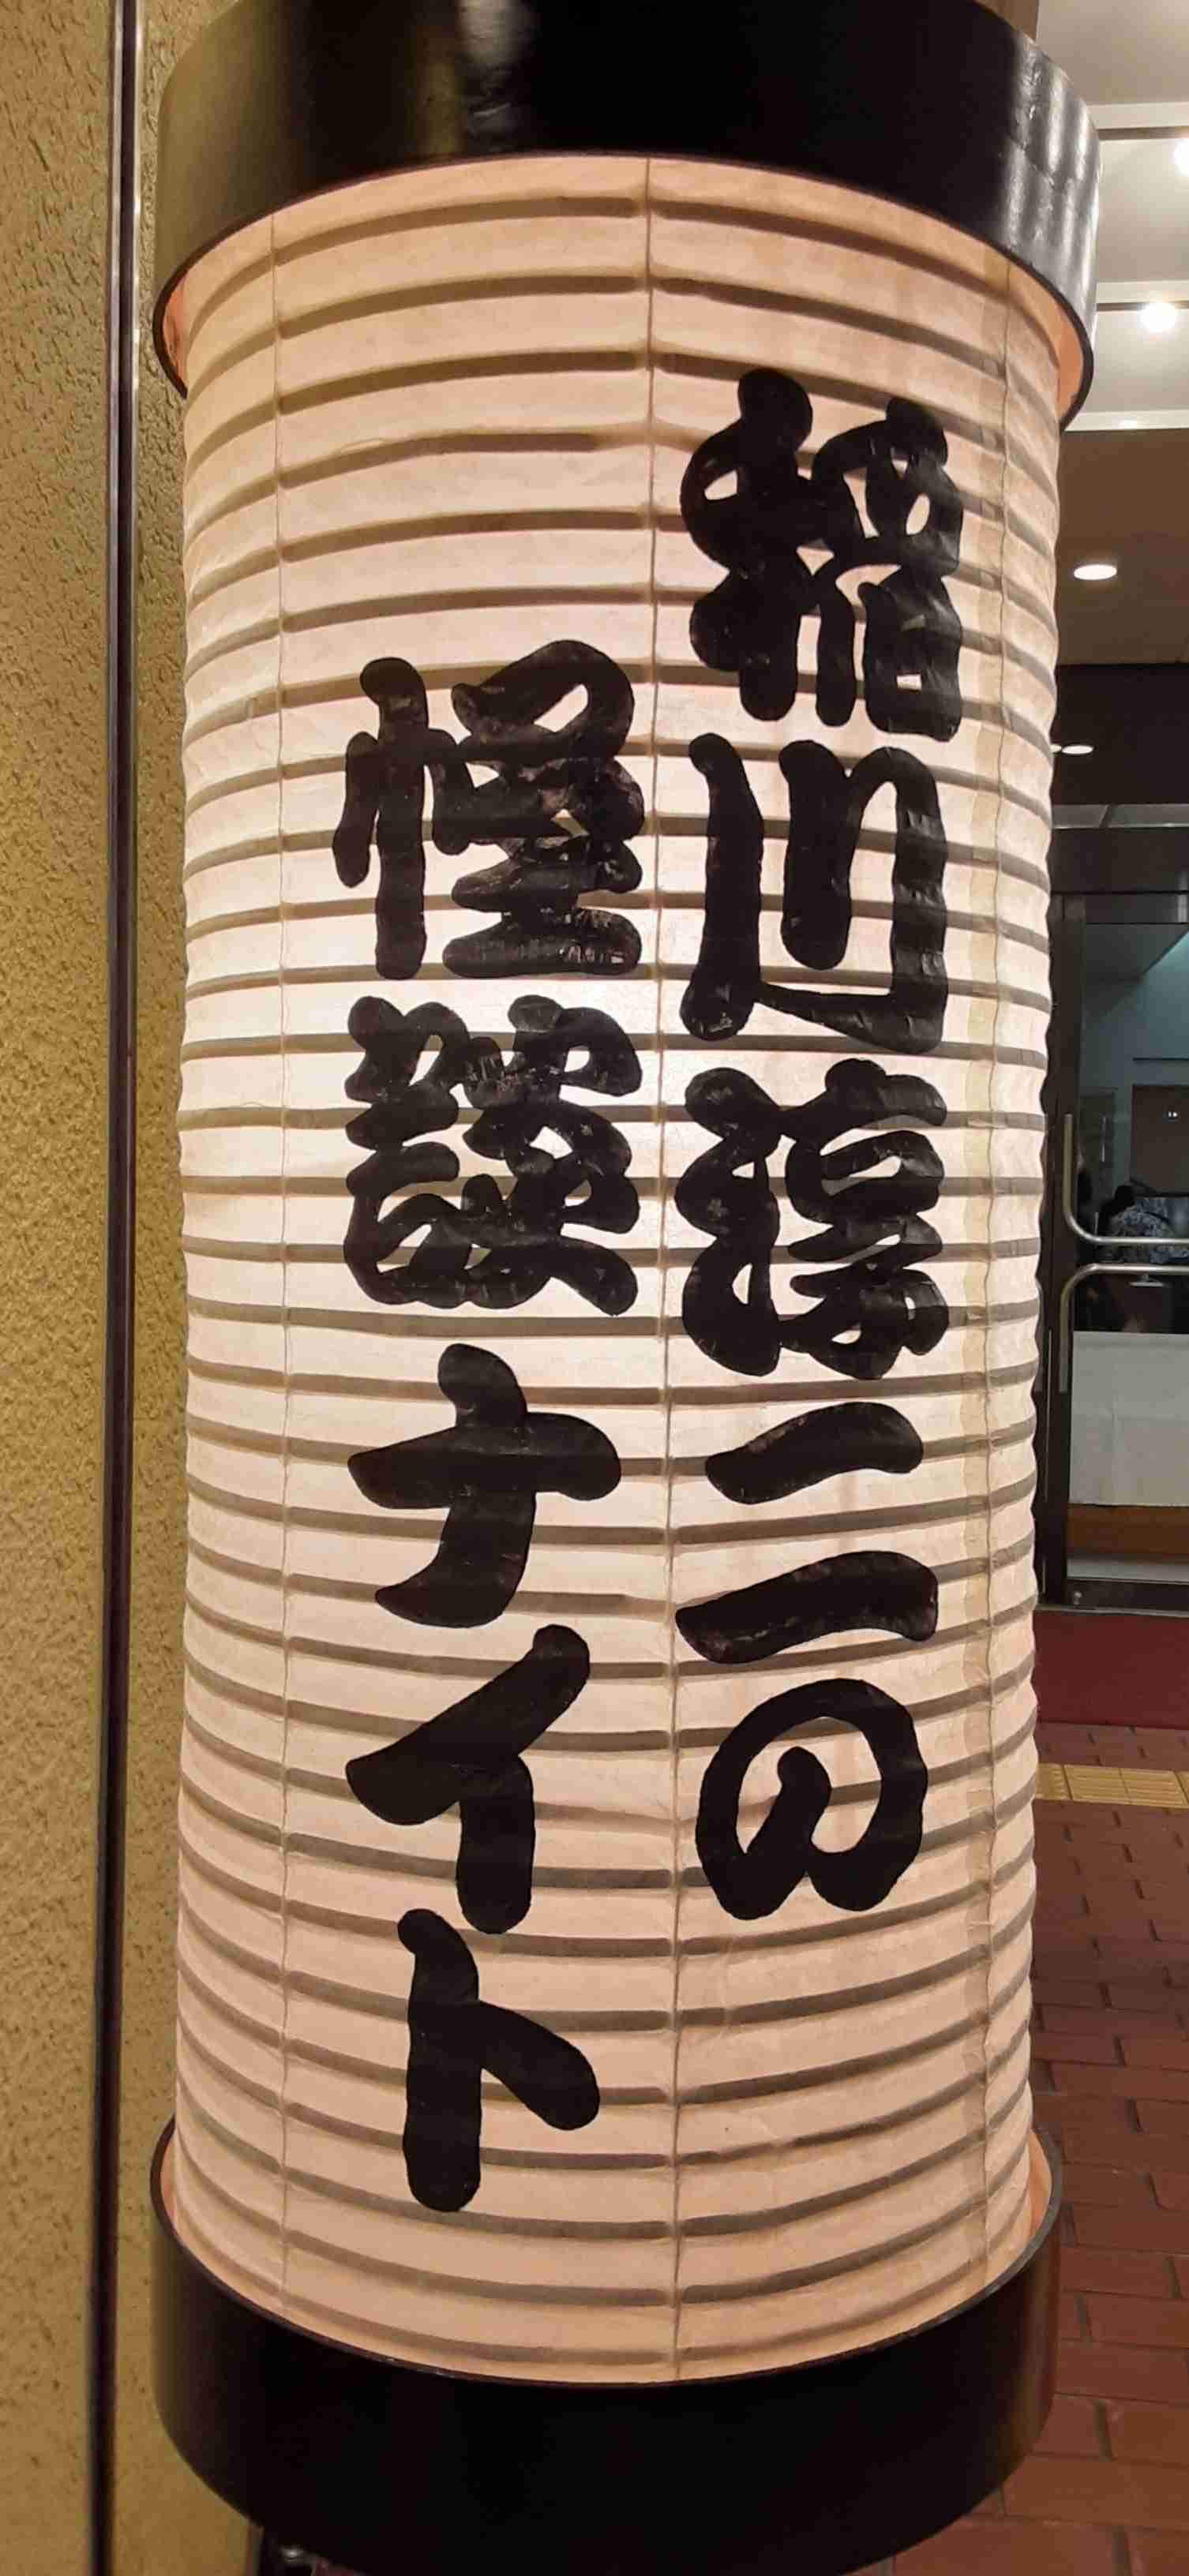 稲川淳二の
怪談ナイト